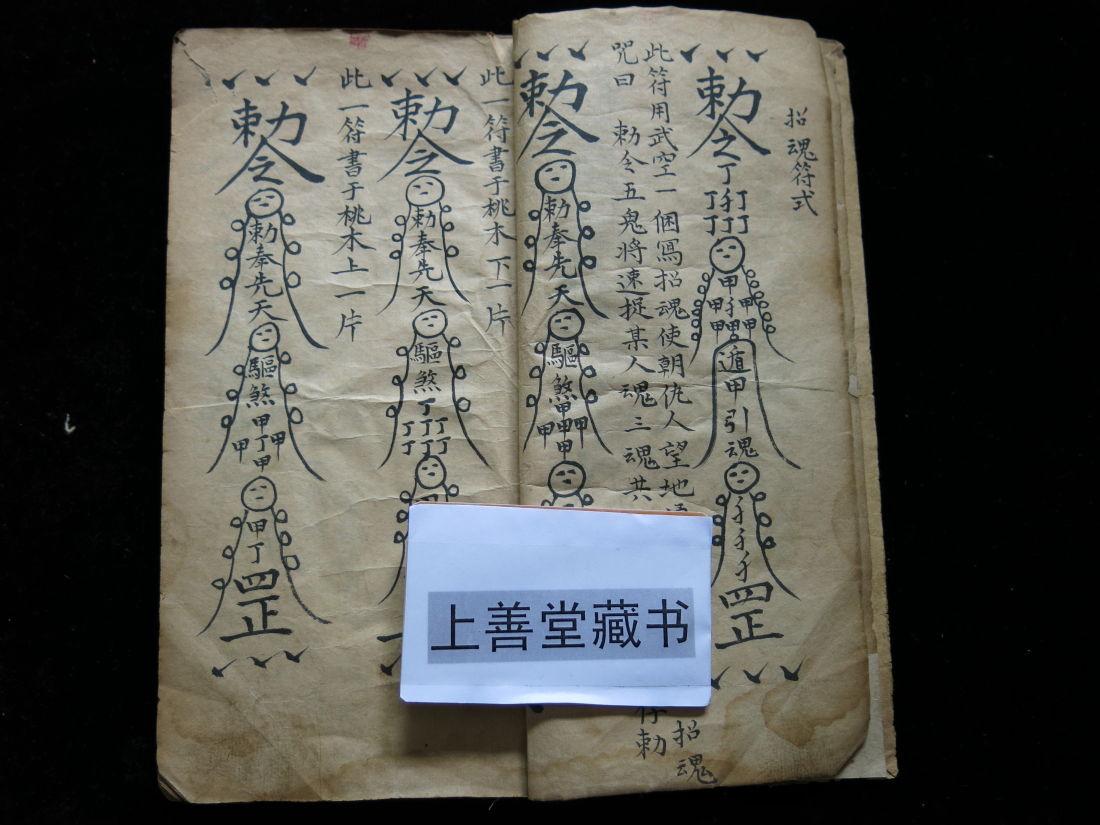 招魂符式
勅令
丁
丁 丁
丁 丁 丁
甲
甲 甲
甲 甲 甲
遁甲引魂
罡
此符用武空一個寫招魂使朝仇人望地
招魂
咒曰 勅令五鬼將速捉某人魂三魂共
勅
勅令
勅奉先天
驅煞
甲
甲 甲 甲
甲
此一符書于桃木下一片
勅令
勅奉先天
驅煞
丁
丁 丁 丁
丁 丁 丁
此一符書于桃木上一片
勅令
勅奉先天
驅煞
甲
甲 丁 甲
甲
甲
丁
罡
上善堂藏书